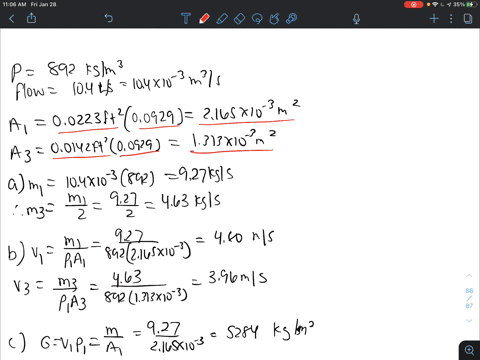 11:06 AM Fri Jan 28
35%
P = 892 kg/m³
flow = 10.4 L/s = 10.4×10⁻³ m³/s
A₁ = 0.0223ft² (0.0929) = 2.165×10⁻³ m²
A₃ = 0.0142ft² (0.0929) = 1.313×10⁻³ m²
a) m₁ = 10.4×10⁻³ (892) = 9.27 kg/s
∴ m₃ = m₁/2 = 9.27/2 = 4.63 kg/s
b) V₁ = m₁/P₁A₁ = 9.27/892(2.165×10⁻³) = 4.80 m/s
V₃ = m₃/P₁A₃ = 4.63/892(1.313×10⁻³) = 3.96 m/s
c) G = V₁P₁ = m/A₁ = 9.27/2.165×10⁻³ = 5284 kg/m²
86
87